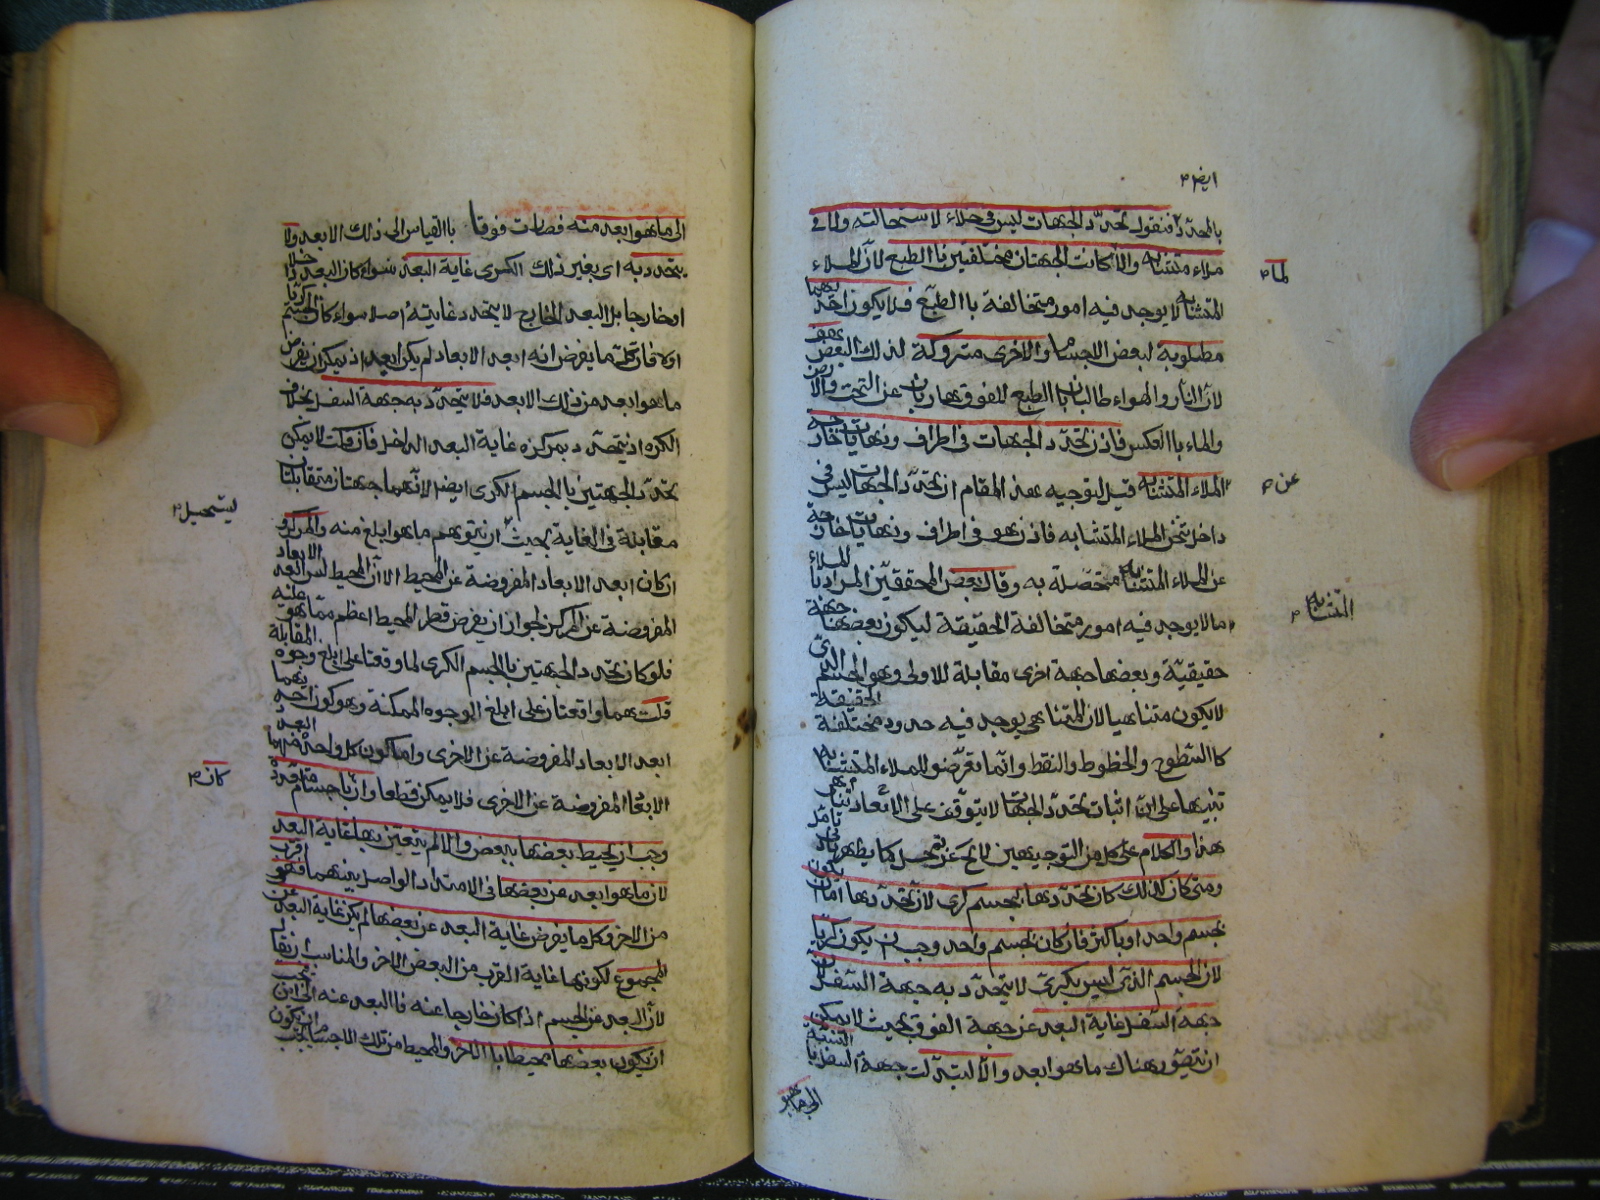 ايضا
بالمحدد فنقول تحدد الجهات ليس في خلاء لاستحالته ولا في
ملاء متشابه والا كانت الجهتان مختلفتين باالطبع لان الملاء
المتشابه لا يوجد فيه امور متخالفة باالطبع فلا يكون احديهما
مطلوبة لبعض الاجسام والاخرى متروكة لذلك البعض
لان النار والهواء طالبان باالطبع للفوق هاربان عن التحت والارض
والماء باالعكس فاذن تحدد الجهات في اطراف ونهايات خارجة
الملاء المتشابه قيل لتوجيه هذا المقام ان تحدد الجهات ليس في
داخل ثخن الملاء المتشابه فاذن هو في اطراف ونهايات خارجة
عن الملاء المتشابه متحصلة به وقال بعض المحققين المراد باالملاء
ما لا يوجد فيه امور متخالفة الحقيقة ليكون بعضها جهة
حقيقية وبعضها جهة اخرى مقابلة للاولى وهو الجسم الذى
لا يكون متناهيا لان المتناهي يوجد فيه حدود مختلفة الحقيقة
كاالسطوح والخطوط والنقط وانما تعرضوا للملاء المتشابه
تنبيها على ان اثبات تحدد الجهات لا يتوقف على تناهى الابعاد
هذا والكلام على كل من التوجيهين لا يخ عن تمحل كما يظهر بادنى تامل
ومتى كان كذلك كان تحددها بجسم كرى لان تحددها اما ان يكون
بجسم واحد او باكثر فان كان بجسم واحد وجب ان يكون كريا
لان الجسم الذى ليس بكرى لا يتحدد به جهة السفل لان
جهة السفل غاية البعد عن جهة الفوق بحيث لا يمكن
ان يتصور هناك ما هو ابعد والا لتبدلت جهة السفل باالنسبة
الى ما هو
لما
عن
المتشابه
الى ما هو ابعد منه فصارت فوقا باالقياس الى ذلك الابعد ولا
يتحدد به اى بغير ذلك الكرى غاية البعد سواء كان البعد داخلا
او خارجا بل البعد الخارج لا يتحدد غايته اصلا سواء كان الجسم كريا
اولا فان كلما يفرض انه ابعد الابعاد لم يكن ابعد اذ يمكن ان يفرض
ما هو ابعد من ذلك الابعد فلا يتحدد به جهة السفل بخلاف
الكره اذ يتحدد بمركزه غاية البعد الداخل فان قلت لا يمكن
تحدد الجهتين باالجسم الكرى ايضا لانهما جهتان متقابلتان
مقابلة في الغاية بحيث ان يتوهم ما هو ابلغ منه والمركز و
ان كان ابعد الابعاد المفروضة عن المحيط الا ان المحيط ليس ابعد الابعاد
المفروضة عن المركز لجواز ان يفرض قطر المحيط اعظم مما هو عليه
فلو كان تحدد الجهتين باالجسم الكرى لما وقعتا على ابلغ وجوه المقابلة
قلت هما واقعتان على ابلغ الوجوه الممكنة وهو كون احديهما
ابعد الابعاد المفروضة عن الاخرى واما كون كل واحدة منهما ابعد
الابعاد المفروضة عن الاخرى فلا يمكن قطعا وان باجسام متعددة
وجب ان يحيط بعضها ببعض والا لم يتعين بها غاية البعد
لان ما هو ابعد عن بعضها في الامتداد الواصل بينهما فهو اقرب
من الاخر وكل ما يفرض غاية البعد عن بعضها لم يكن غاية البعد عن
المجموع لكونها غاية القرب من البعض الاخر والمناسب ان يقال
لان البعد عن الجسم اذا كان خارجا عنه فاالبعد عنه الى اين
ان يكون بعضها محيطا باالاخر والمحيط من تلك الاجسام يجب ان يكون
يستحيل
كان